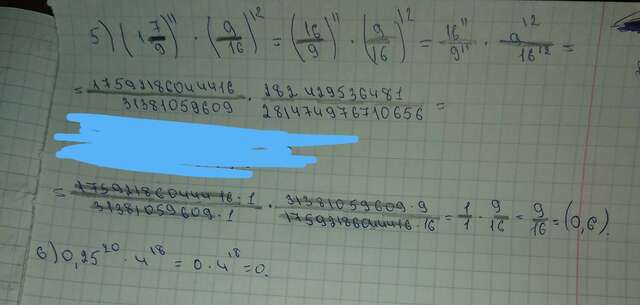 5) (1 7/9)^11 · (9/16)^12 = (16/9)^11 · (9/16)^12 = 16^11/9^11 · 9^12/16^12 =
= 17592186044416/31381059609 · 282429536481/281474976710656 =
= 17592186044416·1/31381059609·1 · 31381059609·9/17592186044416·16 = 1/1 · 9/16 = 9/16 = (0,6).
6) 0,25^20 · 4^18 = 0·4^18 = 0.